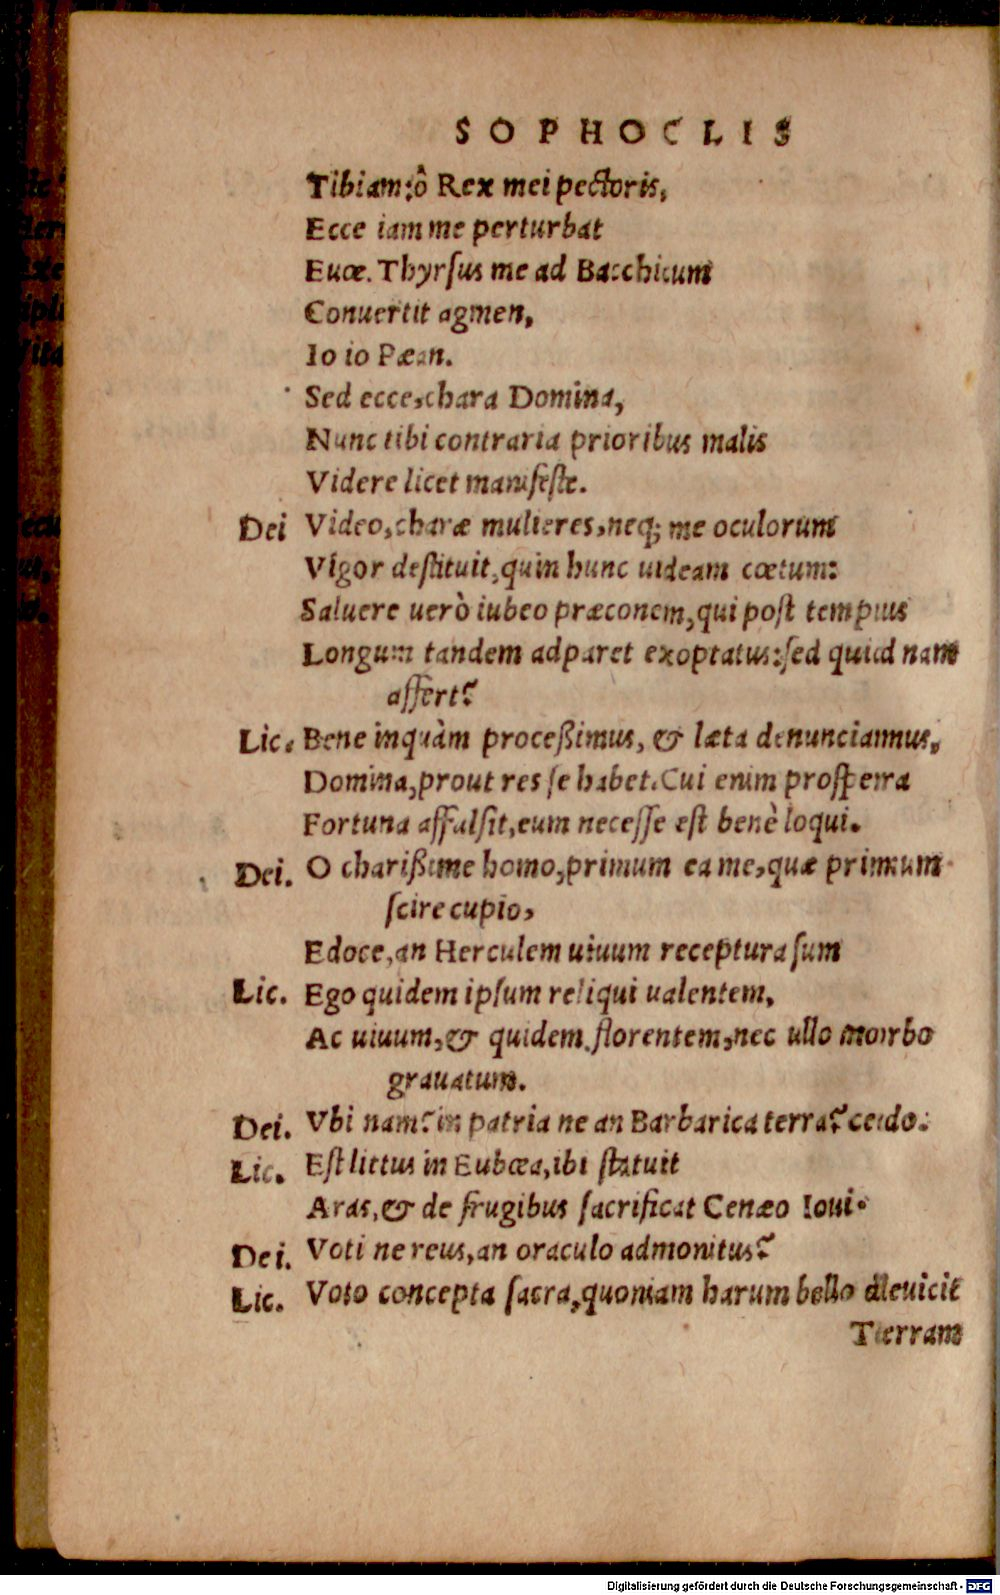 SOPHOCLIS
Tibiam: ô Rex mei pectoris,
Ecce iam me perturbat
Euœ. Thyrsus me ad Bacchicum
Conuertit agmen,
Io io Pæan.
Sed ecce, chara Domina,
Nunc tibi contraria prioribus malis
Videre licet manifeste.
Dei Video, charæ mulieres, neq; me oculorum
Vigor destituit, quin hunc uideam cœtum:
Saluere uerò iubeo præconem, qui post tempus
Longum tandem adparet exoptatus: sed quid nam
affert?
Lic. Bene inquàm proceßimus, & læta denunciamus,
Domina, prout res se habet. Cui enim prospera
Fortuna affulsit, eum necesse est benè loqui.
Dei. O charißime homo, primum ea me, quæ primum
scire cupio,
Edoce, an Herculem uiuum receptura sum
Lic. Ego quidem ipsum reliqui ualentem,
Ac uiuum, & quidem florentem, nec ullo morbo
grauatum.
Dei. Vbi nam? in patria ne an Barbarica terra? cedo.
Lic. Est littus in Eubœa, ibi statuit
Aras, & de frugibus sacrificat Cenæo Ioui.
Dei. Voti ne reus, an oraculo admonitus?
Lic. Voto concepta sacra, quoniam harum bello deuicit
Terram
Digitalisierung gefördert durch die Deutsche Forschungsgemeinschaft - DFG